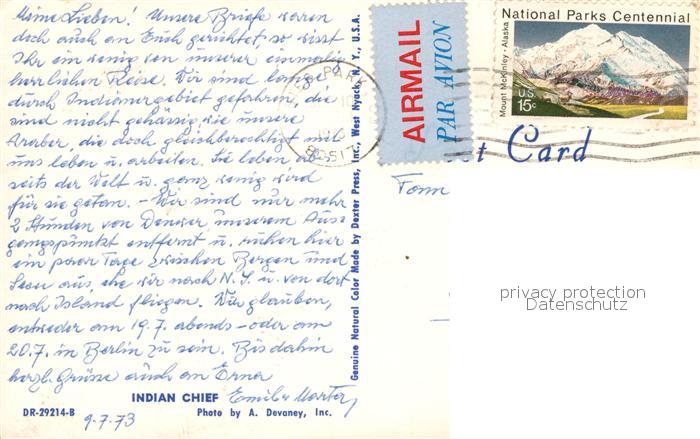 Meine Lieben! Unsere Briefe waren
doch auch an Euch gerichtet, so wisst
Ihr ein wenig von unserer einmalig
herrlichen Reise. Wir sind lange
durch Indianergebiet gefahren, die
sind nicht gehässig wie unsere
Araber, die doch gleichberechtigt mit
uns leben u. arbeiten. Sie leben ab-
seits der Welt u. ganz wenig wird
für sie getan. - Wir sind nur mehr
2 Stunden von Denver unserem Aus-
gangspunkt entfernt u. ruhen hier
ein paar Tage zwischen Bergen und
Seen aus, ehe wir nach N.Y. u. von dort
nach Island fliegen. Wir glauben,
entweder am 19.7. abends - oder am
20.7. in Berlin zu sein. Bis dahin
herzl. Grüsse auch an Erna
INDIAN CHIEF
DR-29214-B
Photo by A. Devaney, Inc.
9.7.73
Genuine Natural Color Made by Dexter Press, Inc., West Nyack, N. Y., U.S.A.
PARK
80517
AIRMAIL
PAR AVION
National Parks Centennial
Mount McKinley · Alaska
U.S.
15c
t Card
privacy protection
Datenschutz